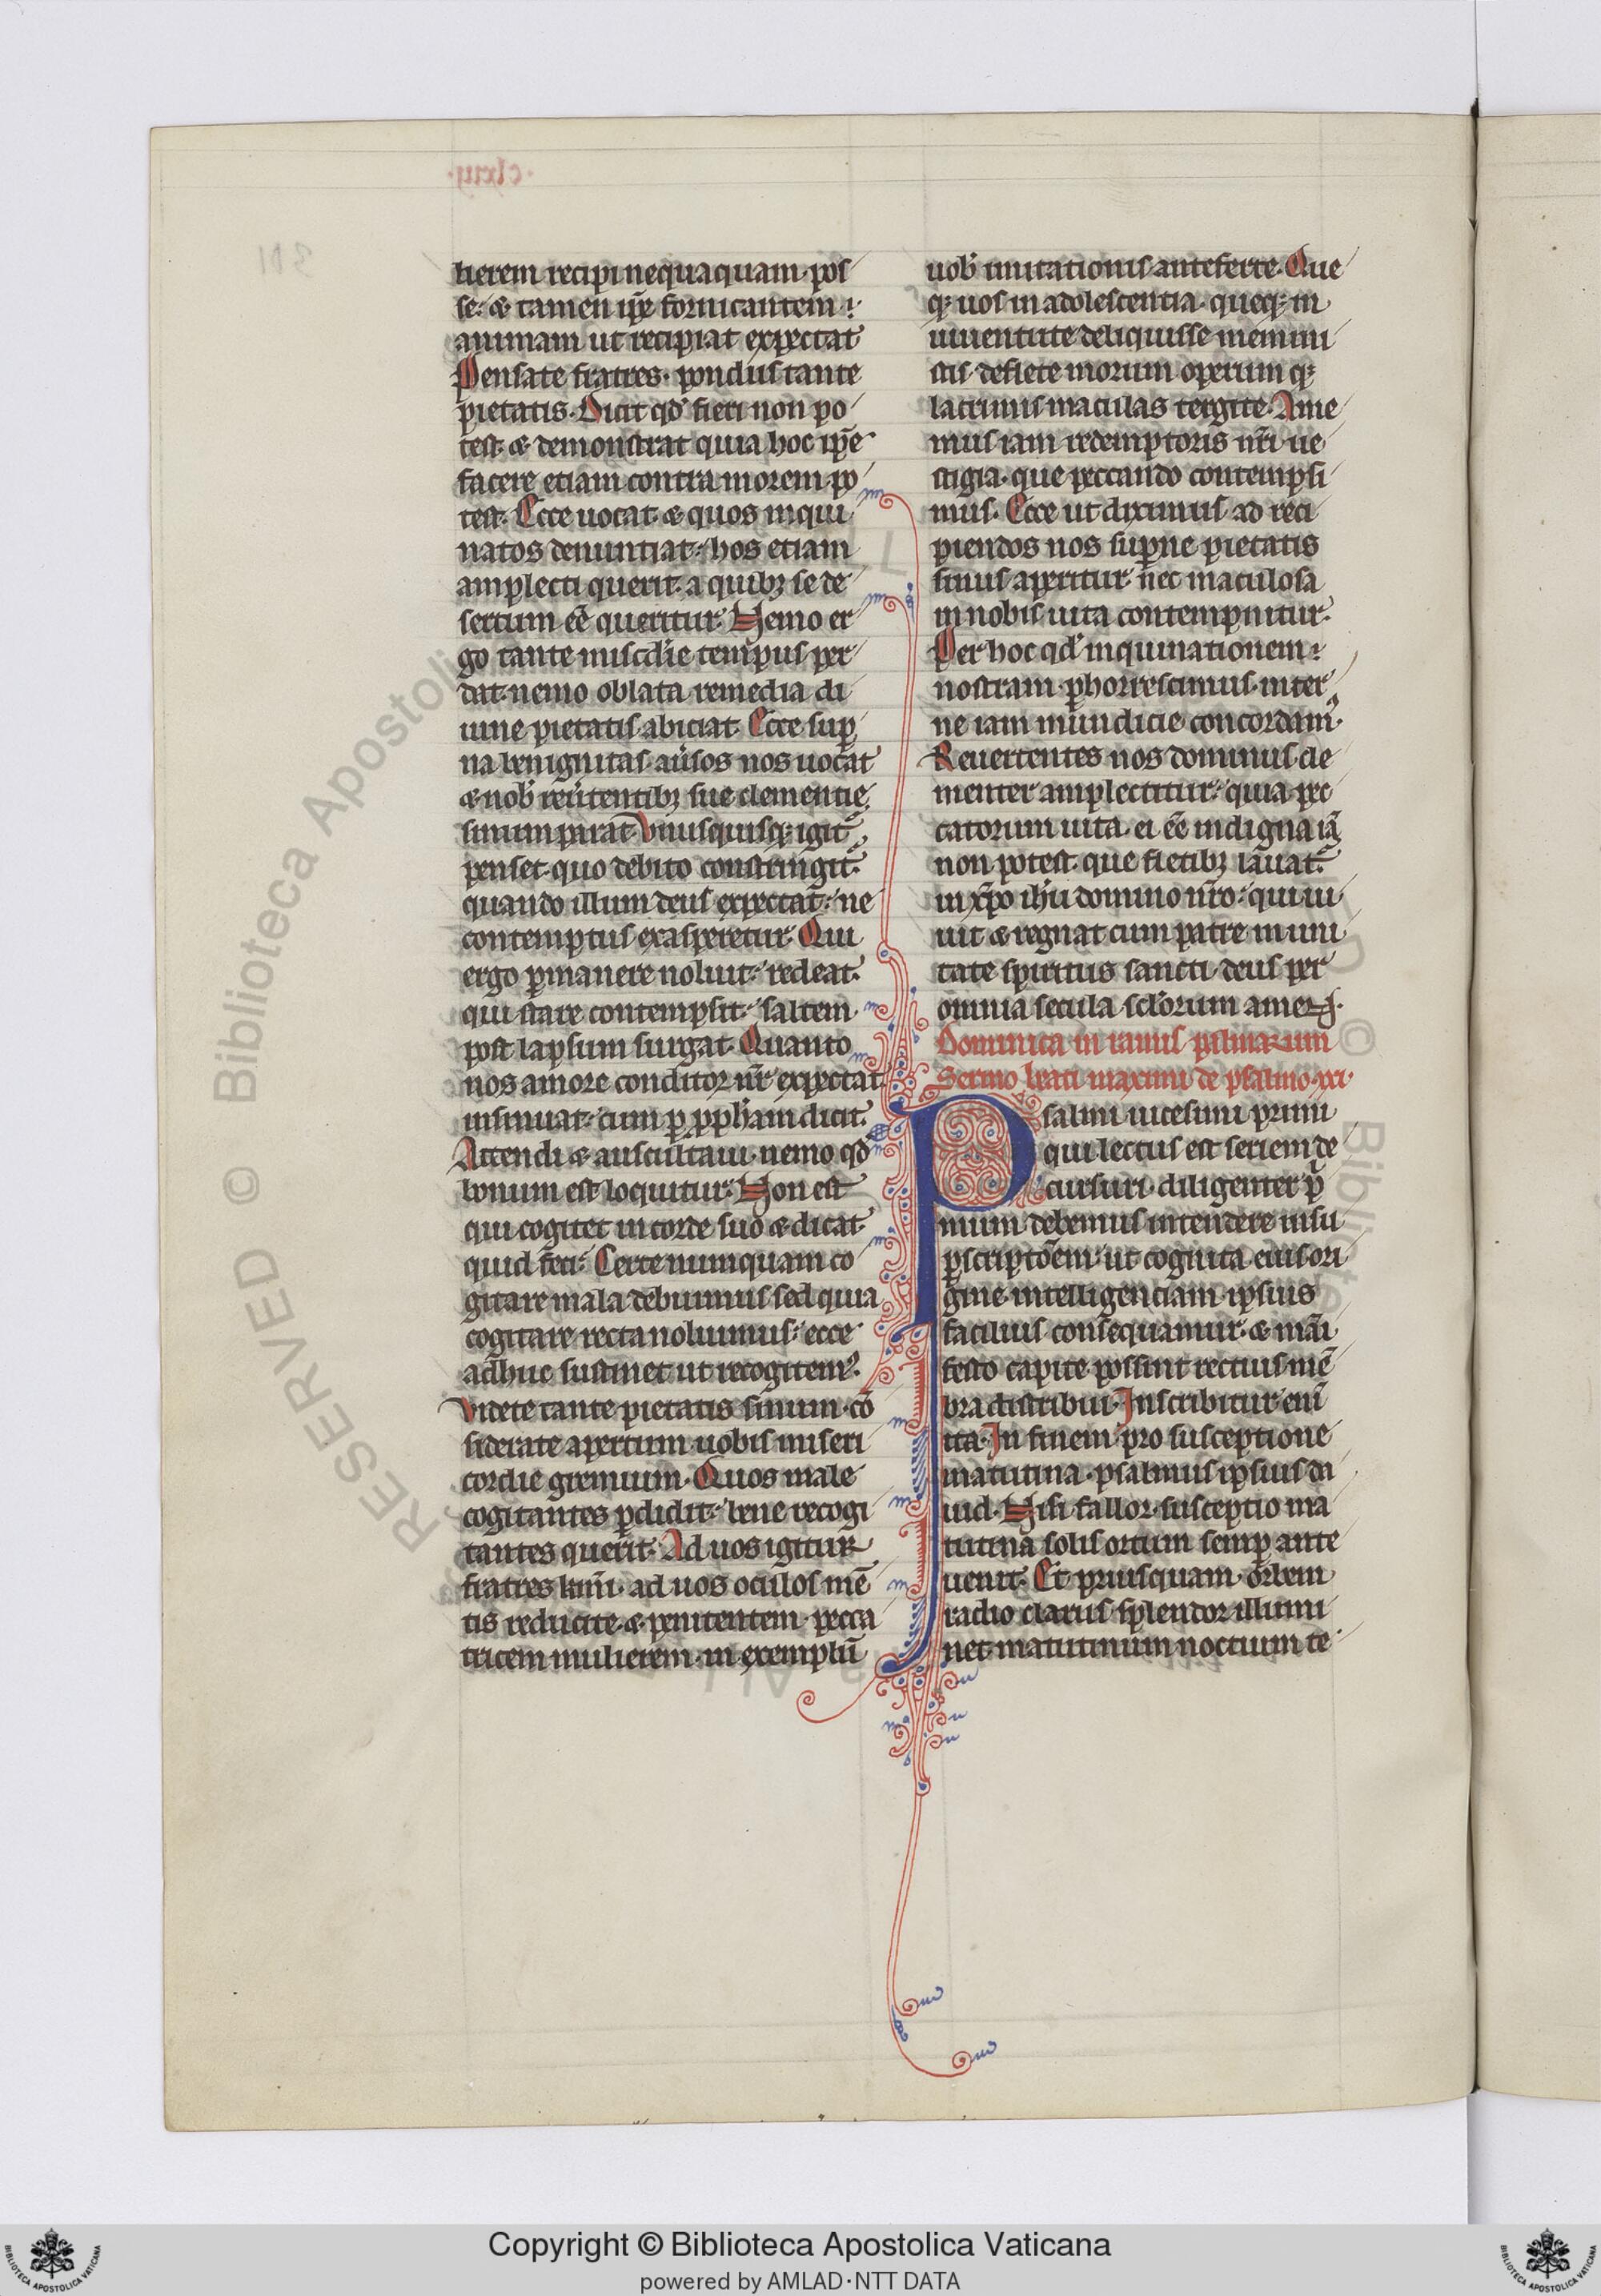 lierem recipi nequaquam pos
se. & tamen ip̄e fornicantem
animam ut recipiat expectat
Pensate fratres. pondus tante
pietatis. Dicit qd' fieri non po
test. & demonstrat quia hoc ip̄e
facere etiam contra morem po
test. Ecce uocat. & quos inqui
natos denuntiat. hos etiam
amplecti querit. a quibꝫ se de
sertum eē queritur. Nemo er
go tante mis̄cdie tempus per
dat. nemo oblata remedia di
uine pietatis abiciat. Ecce sup̄
na benignitas. au̾sos nos uocat
& nob̾ reu̾tentibꝫ sue clementie
sinum parat. Vnusquisqꝫ igit᷑
penset. quo debito constringit᷑.
quando illum deus expectat. ne
contemptus exasperetur. Qui
ergo ꝑmanere noluit. redeat.
qui stare contempsit. saltem
post lapsum surgat. Quanto
nos amore conditor nr̄ expectat
insinuat. cum ꝑ ꝓph̄am dicit.
Attendi & auscultaui. nemo qd̾
bonum est loquitur. Non est
qui cogitet in corde suo & dicat
quid feci. Certe numquam co
gitare mala debuimus sed quia
cogitare recta noluimus. ecce
adhuc sustinet ut recogitemꝰ.
Videte tante pietatis sinum. cō
siderate apertum uobis miseri
cordie gremium. Quos male
cogitantes ꝑdidit. bene recogi
tantes querit. Ad uos igitur
fratres kmi. ad uos oculos mē
tis reducite. & penitentem pecca
tricem mulierem. in exemplū
uob̾ imitationis anteferte. Que
qꝫ uos in adolescentia. queqꝫ in
iuuentute deliquisse memini
stis deflete morum operum qꝫ
lacrimis maculas tergite. Ame
mus iam redemptoris nr̄i ue
stigia. que peccando contempsi
mus. Ecce ut diximus ad reci
piendos nos suꝑne pietatis
sinus aperitur. nec maculosa
in nobis uita contempnitur.
Per hoc qd' inquinationem
nostram ꝑhorrescimus. inter
ne iam mundicie concordamꝰ.
Reuertentes nos dominus cle
menter amplectitur. quia pec
catorum uita. ei eē indigna iā
non potest. que fletibꝫ lauat᷑.
in xp̄o ih̄u domino nr̄o. qui ui
uit & regnat cum patre in uni
tate spiritus sancti deus per
omnia secula scl̄orum amen.
Dominica in ramis palmarum
Sermo beati maximi de psalmo .xxi.
Psalmi uicesimi primi
qui lectus est seriem de
cursuri. diligenter p̄
mum debemus intendere in su
ꝑscriptōem. ut cognita eius ori
gine. intelligenciam ipsius
facilius consequamur. & māi
festo capite possint rectius mē
bra distribui. Inscribitur enī
ita. In finem pro susceptione
matutina. psalmus ipsius da
uid. Nisi fallor. susceptio ma
tutina solis ortum semꝑ ante
uenit. Et priusquam orbem
radio clarus splendor illumi
net. matutinum noctium te
RESERVED © Biblioteca Apostoli
Copyright © Biblioteca Apostolica Vaticana
powered by AMLAD·NTT DATA
BIBLIOTECA APOSTOLICA VATICANA
BIBLIOTECA APOSTOLICA VATICANA